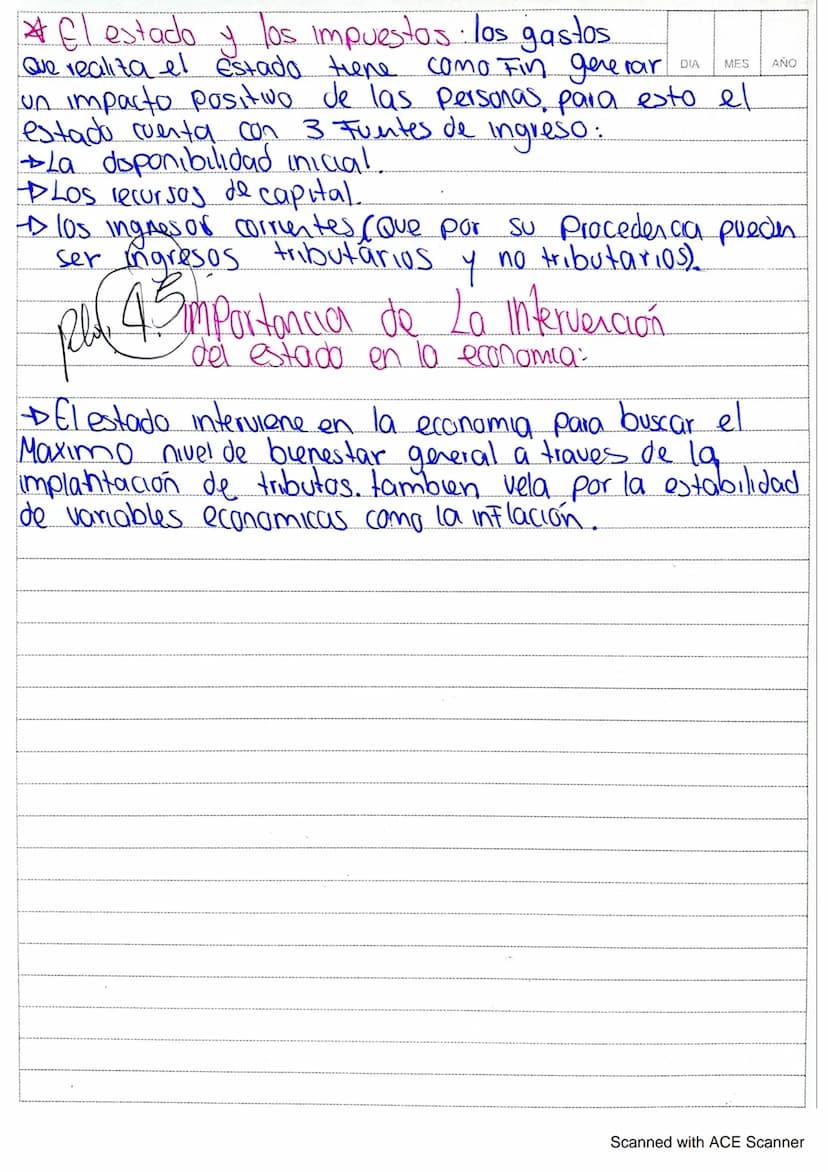 * El estado y los impuestos: los gastos
DIA MES AÑO
que realiza el Estado tiene como fin generar
un impacto positivo de las personas, para esto el
estado cuenta con 3 fuentes de ingreso:
→La disponibilidad inicial.
→Los recursos de capital.
→los ingresos corrientes (que por su Procedencia pueden
ser ingresos tributários y no tributarios).
4.5
importancia de La intervención
del estado en la economia:
→El estado interviene en la economia para buscar el
Maximo nivel de bienestar general a traves de la
implantación de tributos. tambien vela por la estabilidad
de variables economicas como la inflación.
Scanned with ACE Scanner